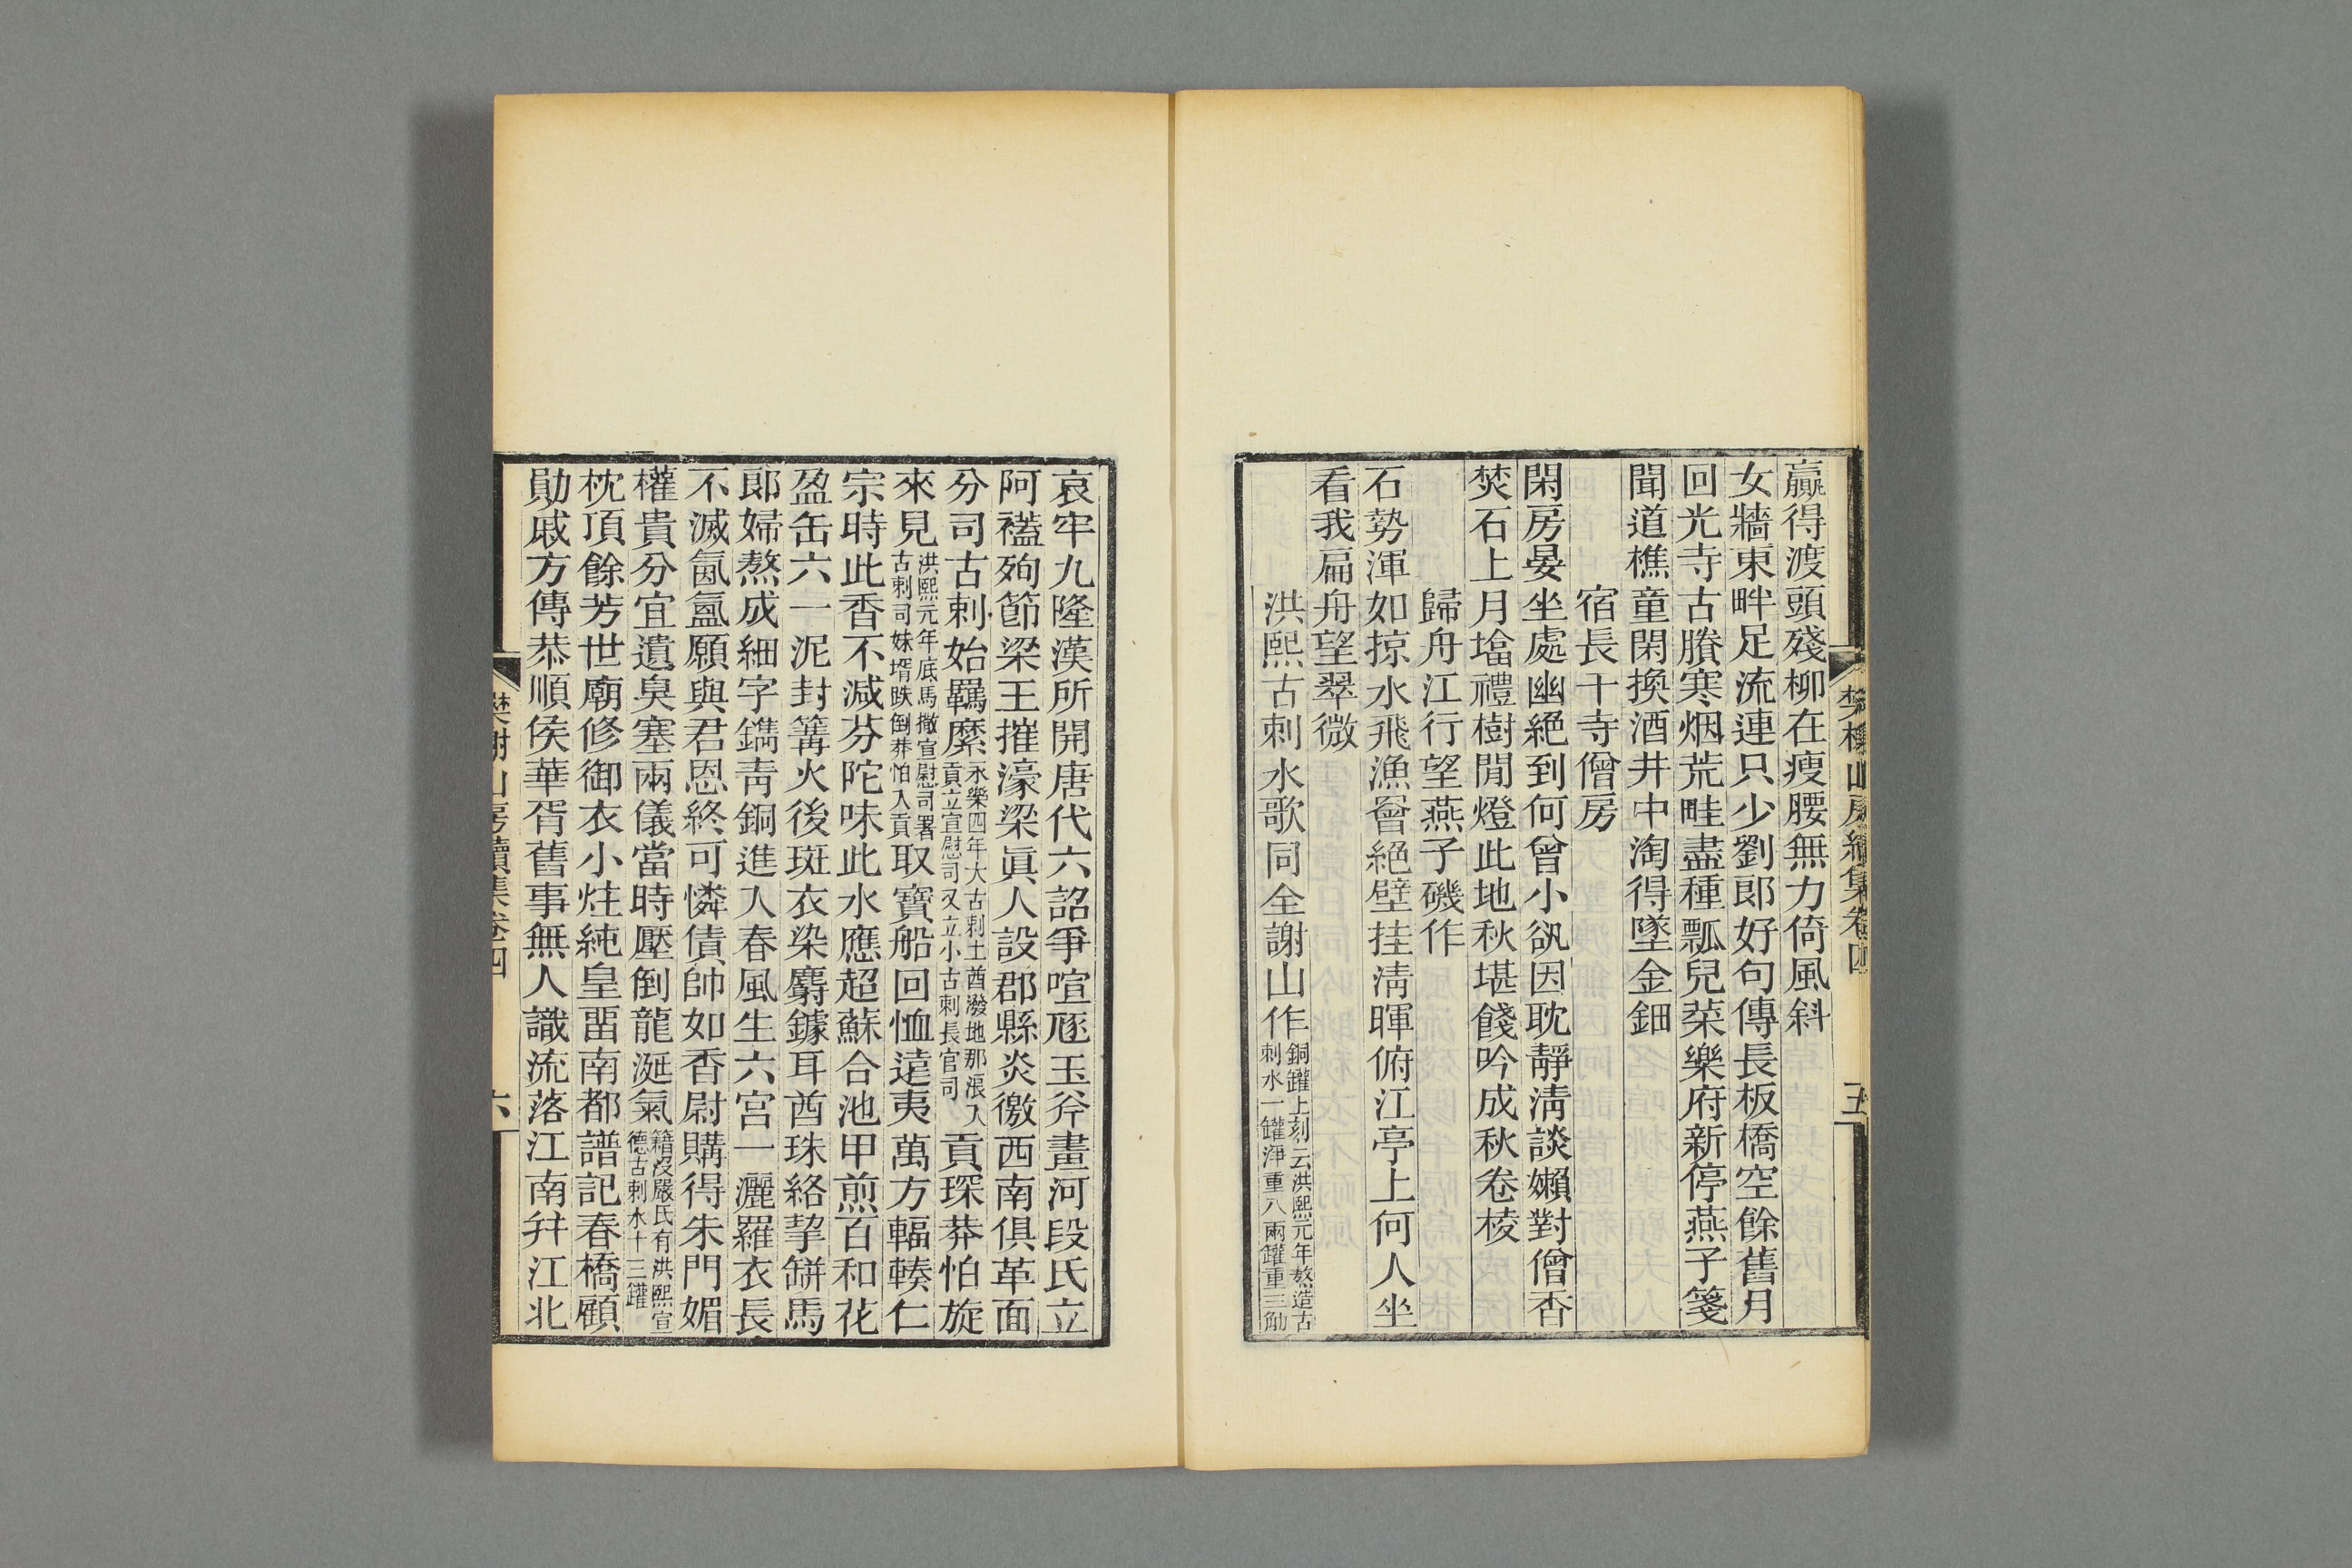 贏得渡頭殘柳在瘦腰無力倚風斜
女牆東畔足流連只少劉郎好句傳長板橋空餘舊月
回光寺古賸寒烟荒畦盡種瓢兒菜樂府新停燕子箋
聞道樵童閑換酒井中淘得墜金鈿
宿長干寺僧房
閑房晏坐處幽絕到何曾小飲因耽靜淸談嬾對僧香
焚石上月塔禮樹閒燈此地秋堪餞吟成秋卷棱
歸舟江行望燕子磯作
石勢渾如掠水飛漁罾絕壁挂淸暉俯江亭上何人坐
看我扁舟望翠微
洪熙古刺水歌同全謝山作銅鑵上刻云洪熙元年熬造古
刺水一鑵淨重八兩鑵重三觔
樊榭山房續集卷四
五
哀牢九隆漢所開唐代六詔爭喧豗玉斧畫河段氏立
阿䙝殉節梁王摧濠梁眞人設郡縣炎徼西南俱革面
分司古刺始羈縻永樂四年大古刺土酋潑地那漲入
貢立宣慰司又立小古刺長官司貢琛莽怕旋
來見洪熙元年底馬撒宣慰司署
古刺司妹壻昳倒莽怕入貢取寶船回恤遠夷萬方輻輳仁
宗時此香不減芬陀味此水應超蘇合池甲煎百和花
盈缶六一泥封篝火後斑衣染麝鐻耳酋珠絡挈缾馬
郞婦熬成細字鐫靑銅進入春風生六宮一灑羅衣長
不滅氤氳願與君恩終可憐債帥如香尉購得朱門媚
權貴分宜遺臭塞兩儀當時壓倒龍涎氣籍沒嚴氏有洪熙宣
德古刺水十三鑵
枕頂餘芳世廟修御衣小炷純皇畱南都譜記春橋顧
勛戚方傳恭順侯華胥舊事無人識流落江南幷江北
樊榭山房續集卷四
六